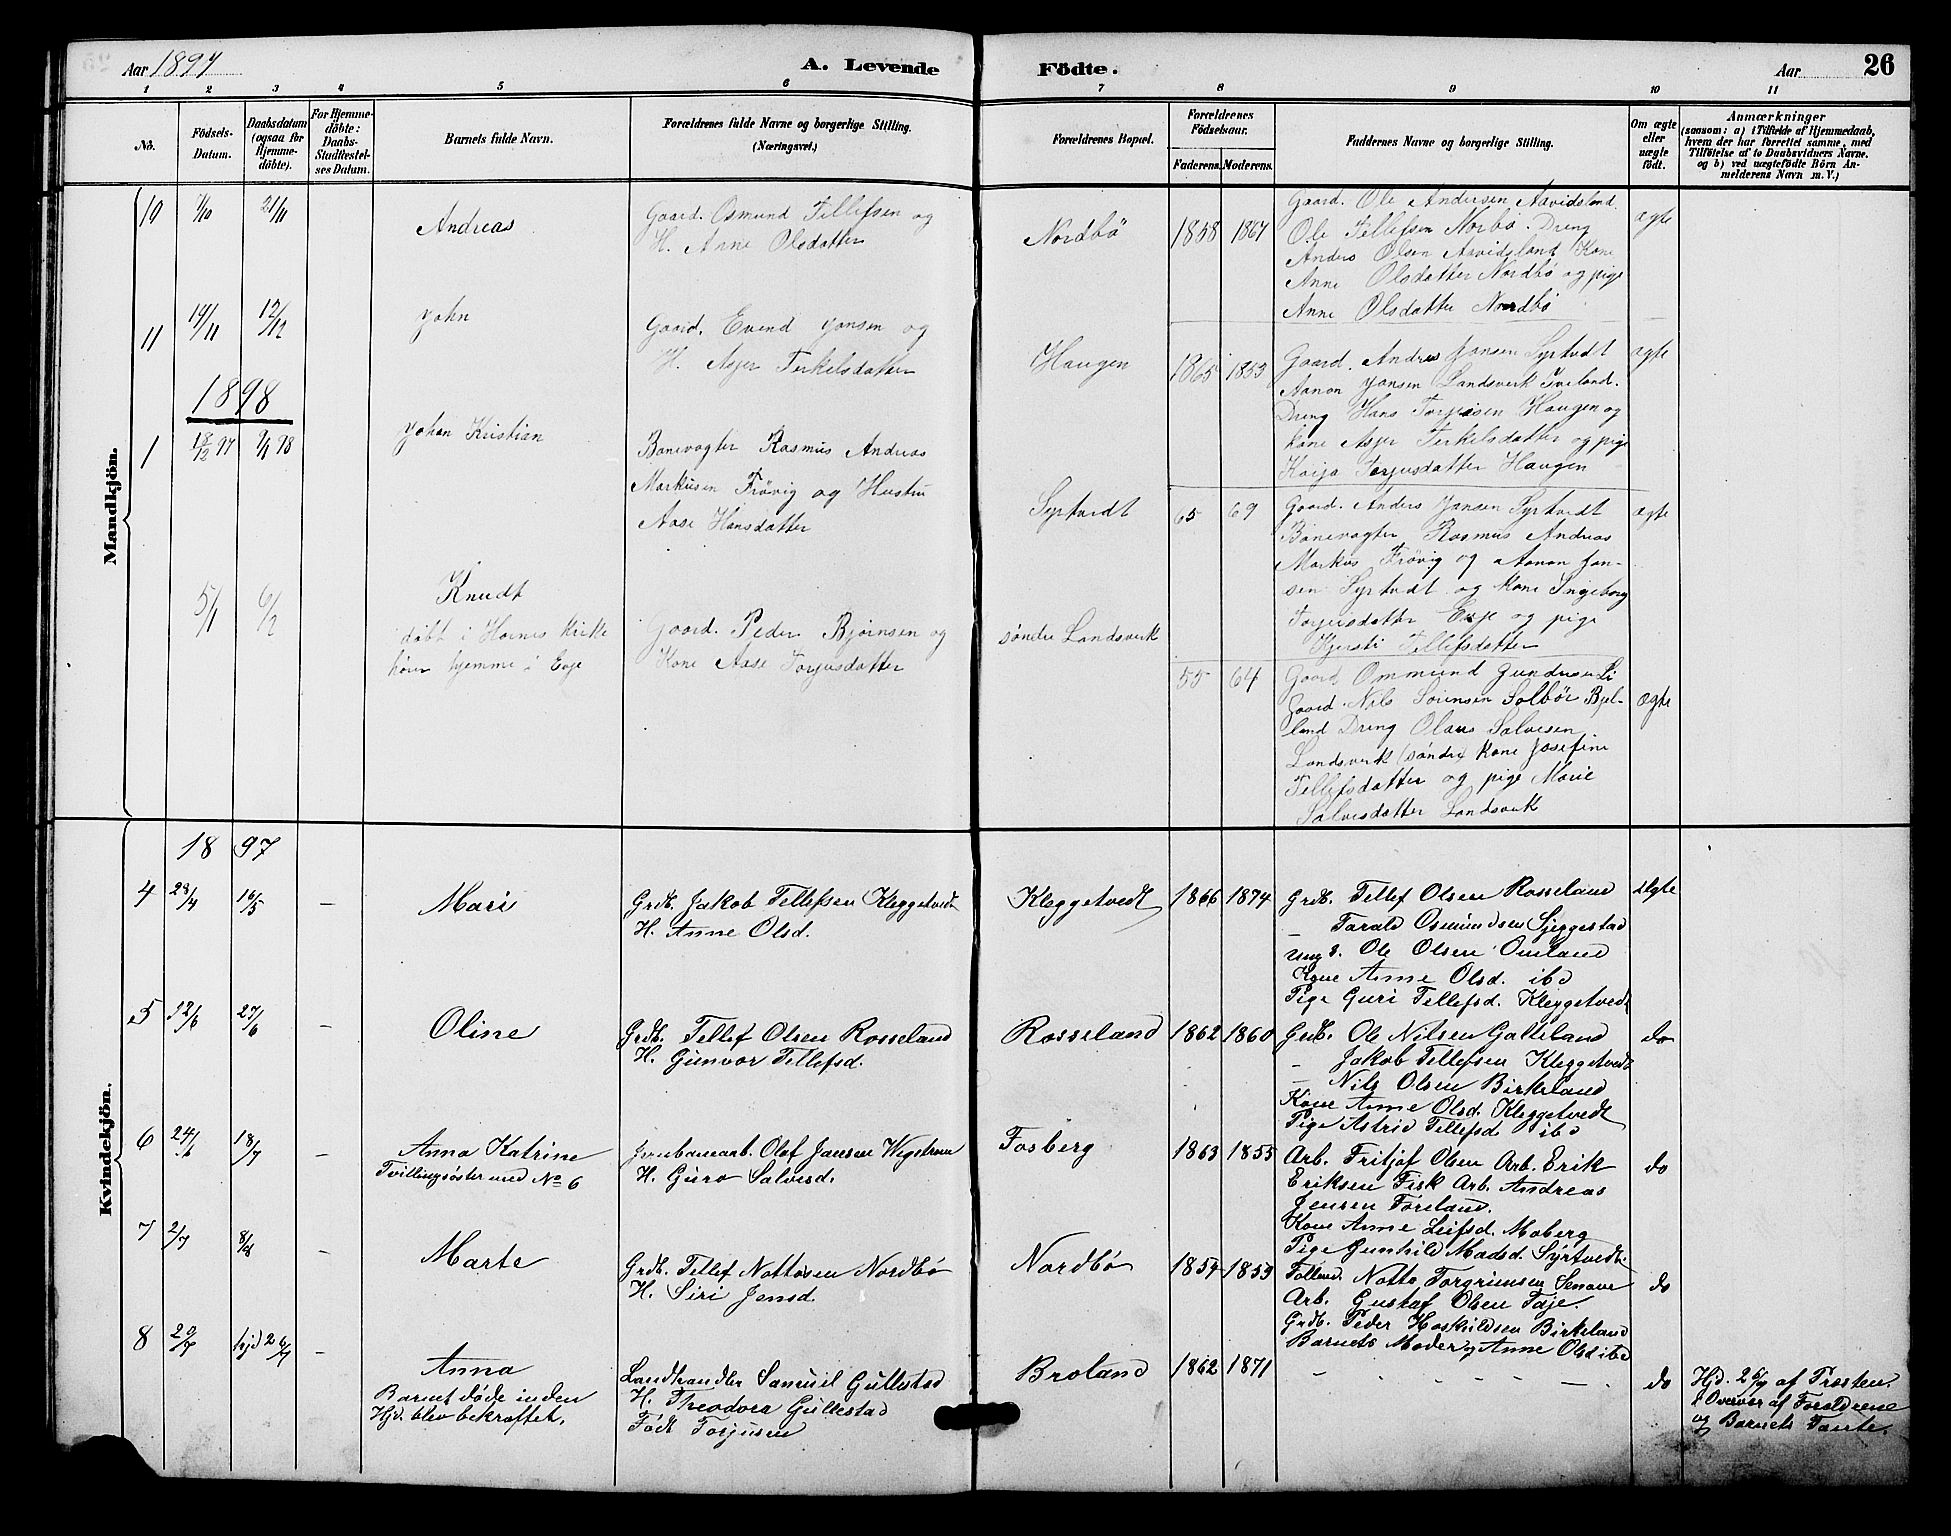 Aar 1897 A. Levende Födte. Aar 26
1 2 3 4 5 6 7 8 9 10 11
No.
Födsels-Datum.
Daabsdatum (ogsaa for Hjemme-döbte).
For Hjemme-döbte: Daabs-Stadfæstel-ses Datum.
Barnets fulde Navn.
Forældrenes fulde Navne og borgerlige Stilling.
(Næringsvei.)
Forældrenes Bopæl.
Forældrenes Födselsaar.
Faderens. Moderens.
Faddernes Navne og borgerlige Stilling.
Om ægte eller uægte födt.
Anmærkninger
(saasom: a) i Tilfælde af Hjemmedaab, hvem der har forrettet samme, med Tilföielse af to Daabsvidners Navne. og b) ved uægtefödte Börn An-melderens Navn m. V.)
Mandkjön.
10 1/10 21/11 Andreas
Gaard. Osmund Tellefsen og
H. Anne Olsdatter
Nordbö 1858 1867
Gaard. Ole Andersen Aavidsland
Ole Tellefsen Norbö. Dreng
Anders Olsen Aavidsland Kone
Anne Olsdatter Nordbö og pige
Anne Olsdatter Nordbö
ægte
11 14/11 12/12 John
Gaard. Evend Jansen og
H. Asjer Terkelsdatter
Haugen 1865 1853
Gaard. Andres Jansen Syrtvedt
Aanon Jansen Landsverk Iveland.
Dreng Hans Torjusen Haugen og
kone Asjer Terkelsdatter og pige
Kaija Torjusdatter Haugen
ægte
1898
1 18/12 97 9/1 98 Johan Kristian
Banevogter Rasmus Andreas
Markusen Frövig og Hustru
Aase Hansdatter
Syrtvedt 65 69
Gaard. Anders Jansen Syrtvedt
Banevogter Rasmus Andreas
Markus Frövig og Aanon Jan-
sen Syrtvedt og kone Ingeborg
Torjusdatter Evje og pige
Kjersti Tellefsdatter
ægte
5/1 6/2 Knudt
döbt i Hornes kirke
hörer hjemme i Evje
Gaard. Peder Bjørnsen og
Kone Aase Torjusdatter
söndre Landsverk 55 64
Gaard Ommund Gundersen Li
Gaard. Nils Sörensen Solbör Bjel-
land Dreng Olaus Salvesen
Landsverk (söndre) kone Josefine
Tellefsdatter og pige Marie
Salvesdatter Landsverk
ægte
Kvindekjön.
1897
4 28/4 16/5 – Mari
Grdb. Jakob Tellefsen Kleggetvedt
H. Anne Olsd.
Kleggetvedt 1866 1874
Grdb. Tellef Olsen Rosseland
– Tarald Osmundsen Sjeggestad
Ung k. Ole Olsen Omland
Kone Anne Olsd. ibd
Pige Guri Tellefsd. Kleggetvedt
ægte
5 12/6 27/6 – Oline
Grdb. Tellef Olsen Rosseland
H. Gunvor Tellefsd.
Rosseland 1862 1860
Grdb. Ole Nilsen Galteland
– Jakob Tellefsen Kleggetvedt
– Nils Olsen Birkeland
Kone Anne Olsd. Kleggetvedt
Pige Astrid Tellefsd ibd
do
6 24/6 18/7 Anna Katrine
Tvillingsöster med No 6
Jernbanearb. Olaf Jansen Wigstrøm
H. Guro Salvesd.
Fosberg 1863 1855
Arb. Fritjof Olsen Arb. Erik
Eriksen Fisk Arb. Andreas
Jensen Föreland.
Kone Anne Leifsd. Moberg
Pige Gunhild Madsd. Syrtvedt
do
7 2/7 8/8 – Marte
Grdb. Tellef Nottosen Nordbö
H. Siri Jensd.
Nordbö 1854 1853
Follmd. Notto Torgrimsen Senave
Arb. Gustaf Olsen Faje.
Grdb. Peder Haskildsen Birkeland
Barnets Moder, Anne Olsd ibd
do
8 20/7 hjd 26/7 – Anna
Barnet döde inden
Hjd. blev bekræftet.
Landhandler Samuil Gullestad
H. Theodora Gullestad
Födt Torjusen
Broland 1862 1871
– – – – – –
do
Hjd. 26/7 af Præsten.
i Overvær af Forældrene
og Barnets Tante.